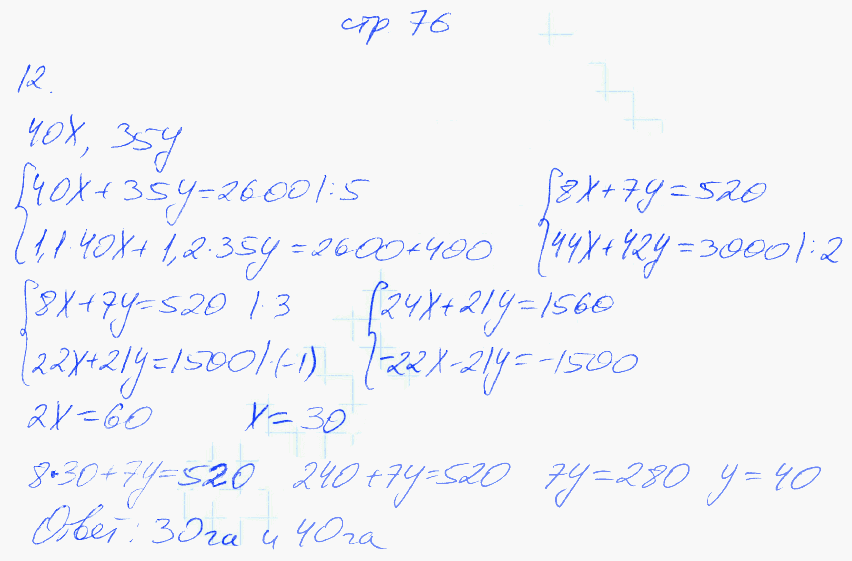 стр 76
12.
40x, 35y
{40x+35y=2600 |:5 {8x+7y=520
{1,1·40x+1,2·35y=2600+400 {44x+42y=3000 |:2
{8x+7y=520 |·3 {24x+21y=1560
{22x+21y=1500 |·(-1) {-22x-21y=-1500
2x=60 x=30
8·30+7y=520 240+7y=520 7y=280 y=40
Ответ: 30га и 40га